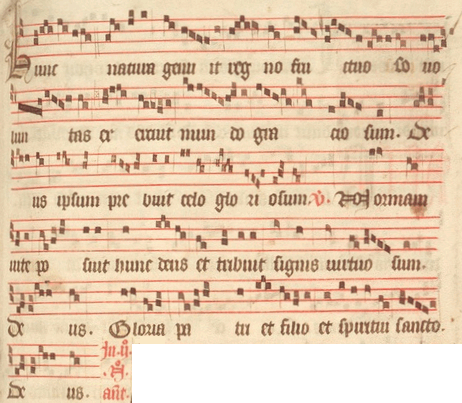 Hunc natura genu it reg no fru ctuo so uo
lun tas ex erciut mun do gra cio sum. De
us ipsum pre buit celo glo ri osum. V. Normam
uite po suit hunc deus et tribuit signis uirtuo sum.
De us. Gloria pa tri et filio et spiritui sancto.
De us.